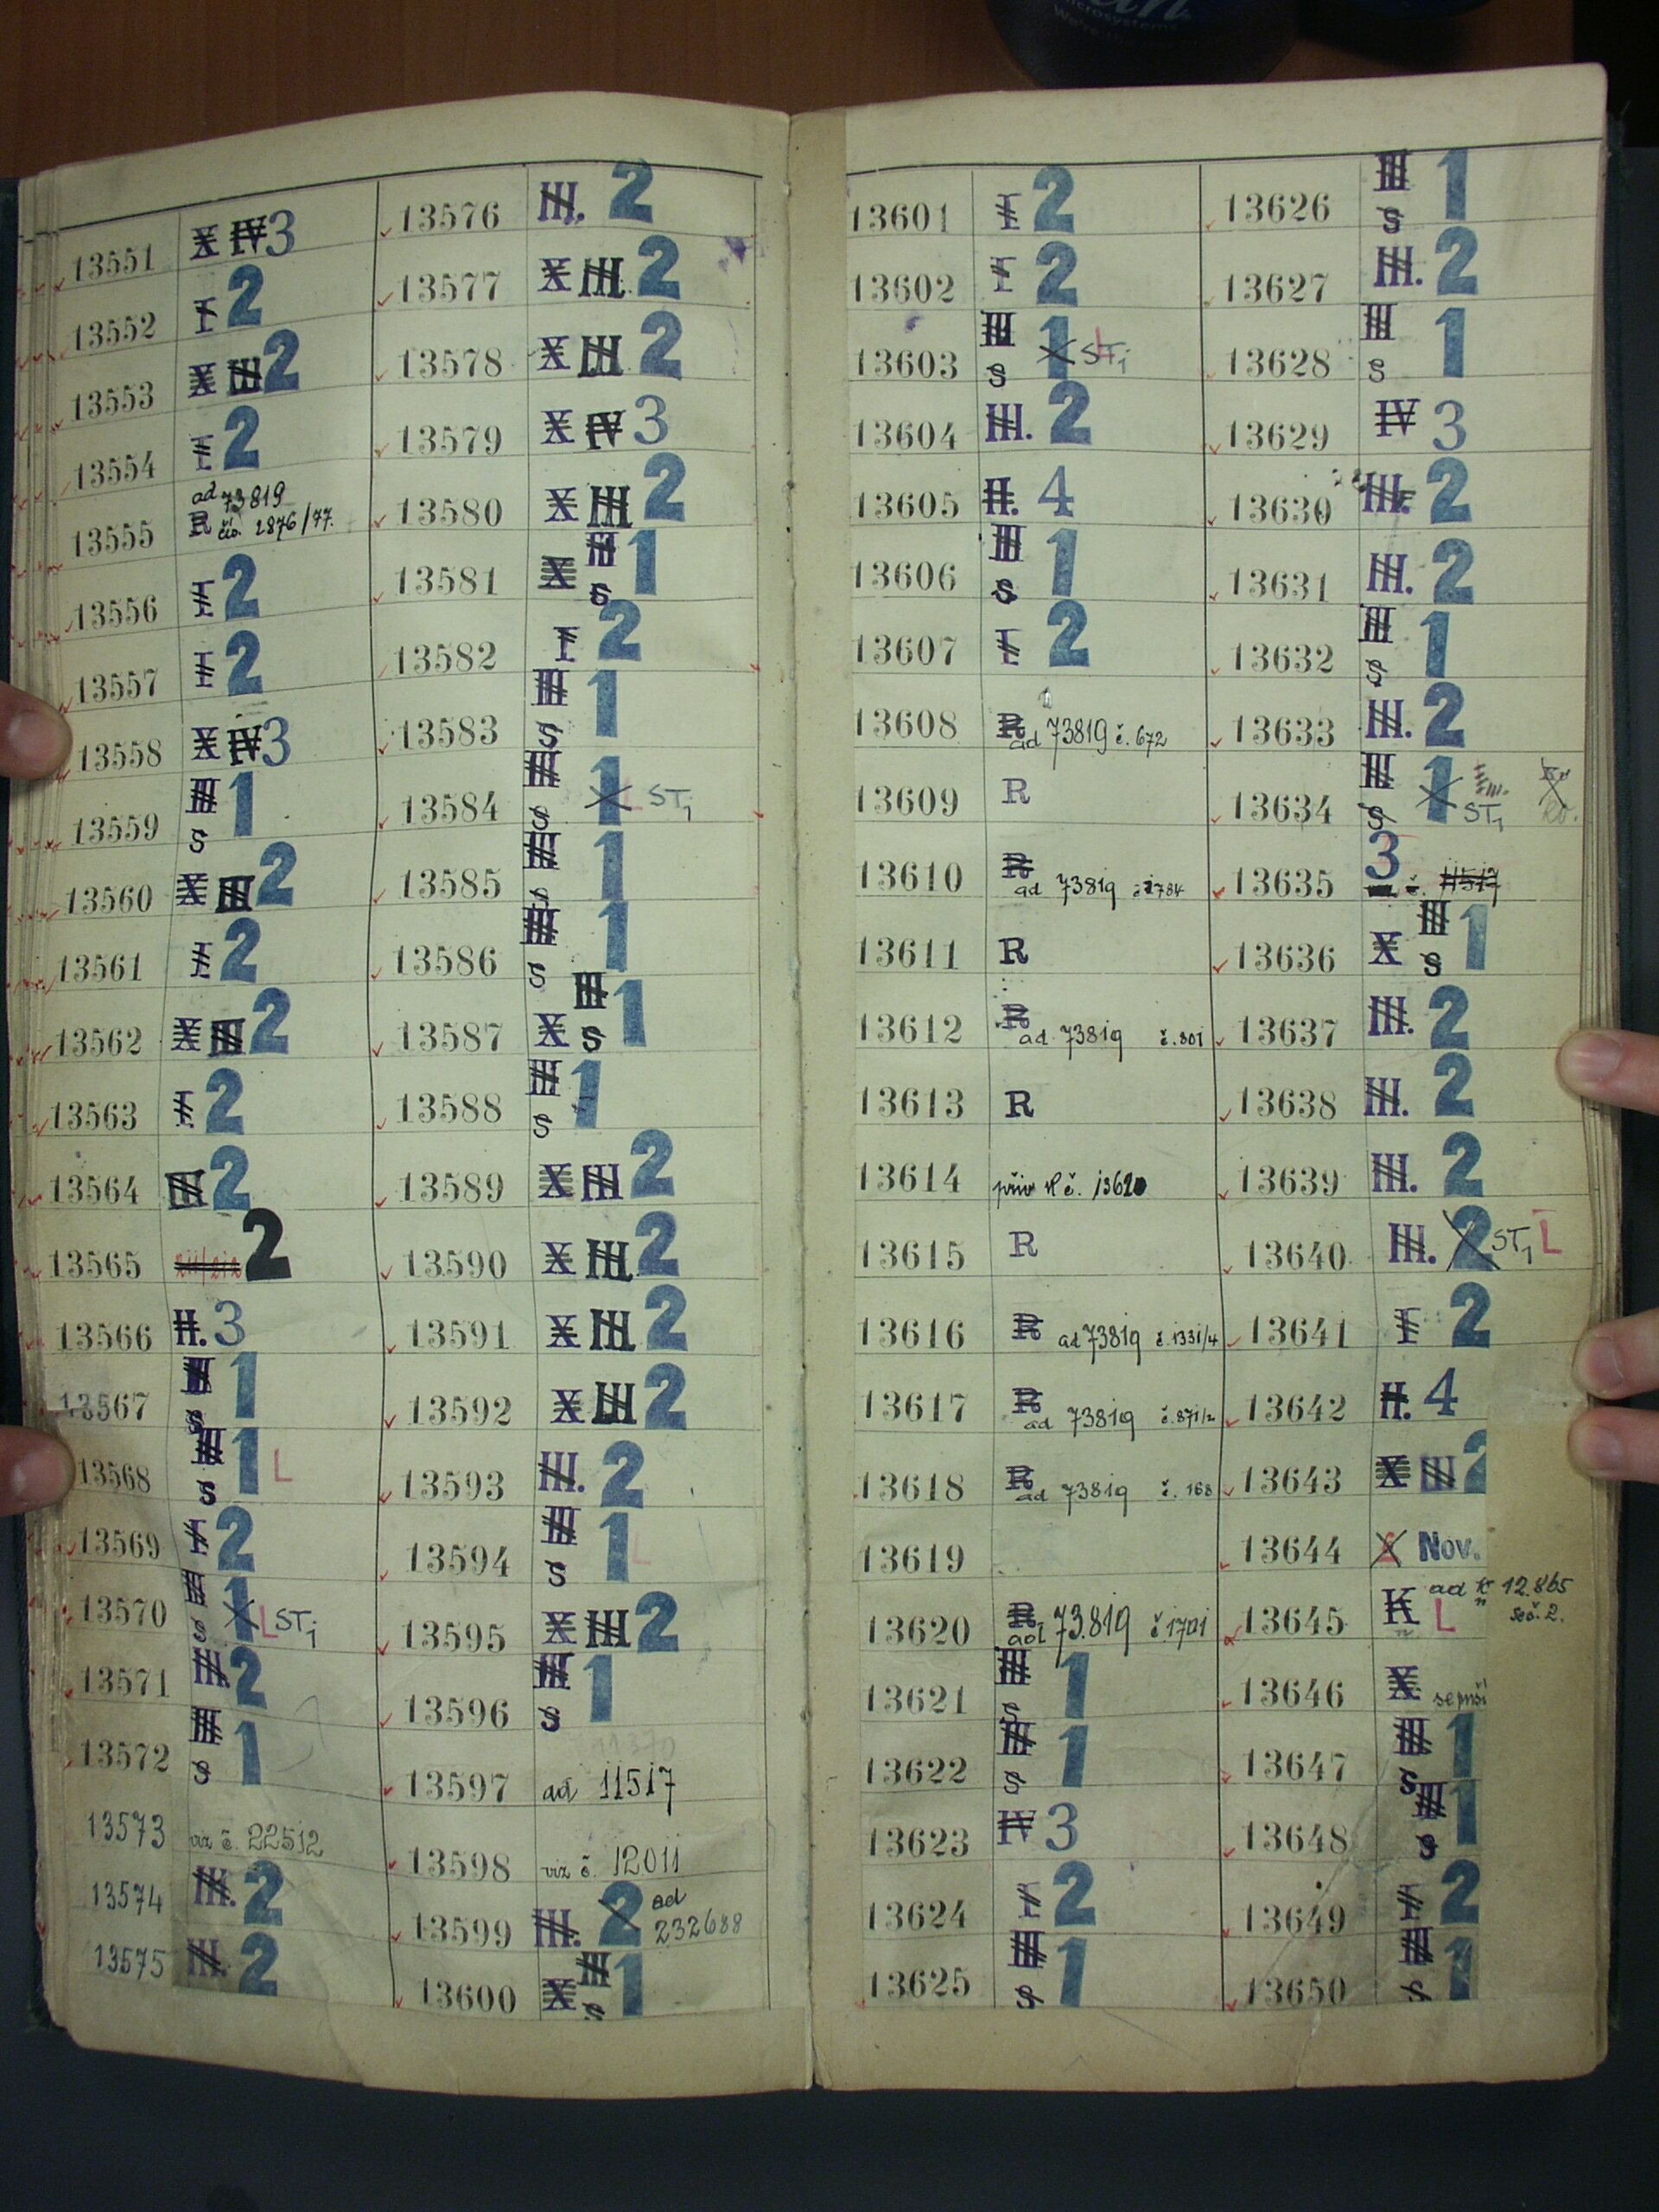 Microsystems
13551 X IV 3
13552 I 2
13553 X III 2
13554 I 2
13555 ad 73819
R čís. 2876/77.
13556 I 2
13557 I 2
13558 X IV 3
13559 III S 1
13560 X III 2
13561 I 2
13562 X III 2
13563 I 2
13564 III 2
13565 2
13566 II. 3
13567 III S 1
13568 III S 1 L
13569 I 2
13570 III S 1 L ST1
13571 III. 2
13572 III S 1
13573 viz č. 22512
13574 III. 2
13575 III. 2
13576 III. 2
13577 X III. 2
13578 X III 2
13579 X IV 3
13580 X III 2
13581 X III S 1
13582 I 2
13583 III S 1
13584 III S 1 L ST1
13585 III S 1
13586 III S 1
13587 X III S 1
13588 III S 1
13589 X III 2
13590 X III. 2
13591 X III 2
13592 X III 2
13593 III. 2
13594 III S 1 L
13595 X III 2
13596 III S 1
13597 ad 11517
13598 viz č. 12011
13599 III. 2 ad
232688
13600 X III S 1
13601 I 2
13602 I 2
13603 III S 1 L ST1
13604 III. 2
13605 II. 4
13606 III S 1
13607 I 2
13608 R ad 73819 č. 672
13609 R
13610 R ad 73819 č. 1784
13611 R
13612 R ad 73819 č. 801
13613 R
13614 přiv. k č. 13620
13615 R
13616 R ad 73819 č. 1331/4
13617 R ad 73819 č. 871/2
13618 R ad 73819 č. 168
13619
13620 R ad 73.819 č. 1701
13621 III S 1
13622 III S 1
13623 IV 3
13624 I 2
13625 III S 1
13626 III S 1
13627 III. 2
13628 III S 1
13629 IV 3
13630 III. 2
13631 III. 2
13632 III S 1
13633 III. 2
13634 III S 1 ST1
13635 3 č. 11517
13636 X III S 1
13637 III. 2
13638 III. 2
13639 III. 2
13640 III. 2 ST1 L
13641 I 2
13642 II. 4
13643 X III 2
13644 Nov.
13645 K L ad K 12.865
seš. 2.
13646 X
13647 III S 1
13648 III S 1
13649 I 2
13650 III S 1